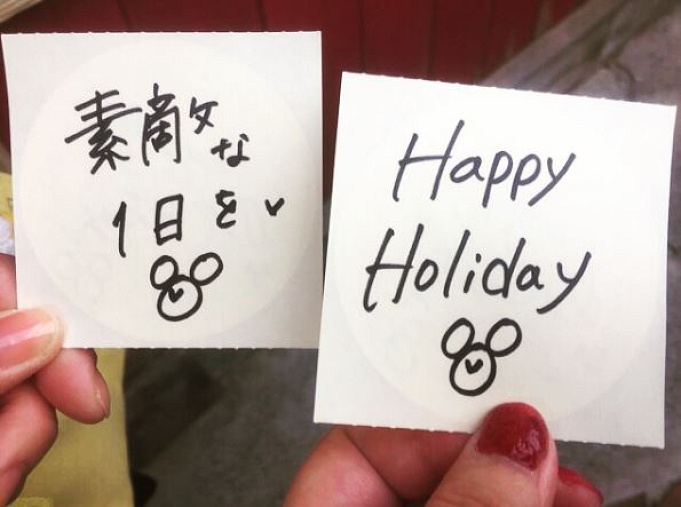 素敵な
1日を
Happy
Holiday